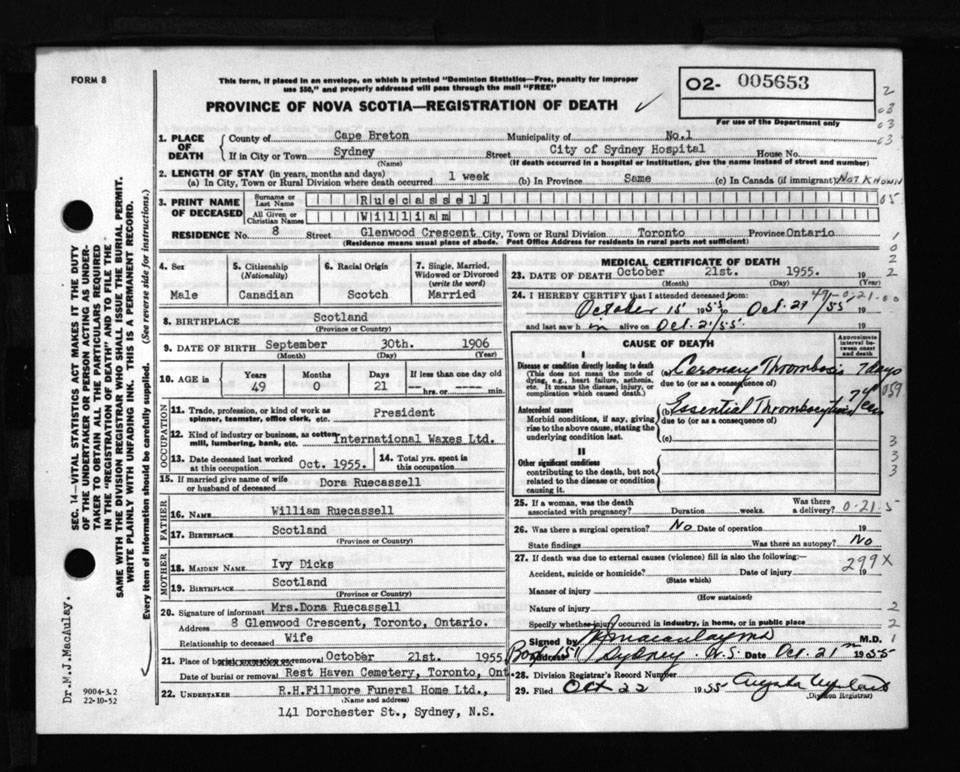 FORM 8
This form, if placed in an envelope, on which is printed "Dominion Statistics—Free, penalty for improper
use $50," and properly addressed will pass through the mail "FREE"
O2- 005653
For use of the Department only
PROVINCE OF NOVA SCOTIA—REGISTRATION OF DEATH ✓
1. PLACE OF DEATH County of Cape Breton Municipality of No.1
If in City or Town Sydney Street City of Sydney Hospital House No.
(Name) (If death occurred in a hospital or institution, give the name instead of street and number)
2. LENGTH OF STAY (in years, months and days)
(a) In City, Town or Rural Division where death occurred 1 week (b) In Province Same (c) In Canada (if immigrant) Not Known
3. PRINT NAME OF DECEASED Surname or Last Name Ruecassell
All Given or Christian Names William
RESIDENCE No. 8 Street Glenwood Crescent City, Town or Rural Division Toronto Province Ontario
(Residence means usual place of abode. Post Office Address for residents in rural parts not sufficient)
4. Sex Male
5. Citizenship (Nationality) Canadian
6. Racial Origin Scotch
7. Single, Married, Widowed or Divorced (write the word) Married
8. BIRTHPLACE Scotland
(Province or Country)
9. DATE OF BIRTH September 30th. 1906
(Month) (Day) (Year)
10. AGE in Years 49 Months 0 Days 21 If less than one day old hrs. or min.
OCCUPATION
11. Trade, profession, or kind of work as spinner, teamster, office clerk, etc. President
12. Kind of industry or business, as cotton mill, lumbering, bank, etc. International Waxes Ltd.
13. Date deceased last worked at this occupation Oct. 1955. 14. Total yrs. spent in this occupation
15. If married give name of wife or husband of deceased Dora Ruecassell
FATHER
16. NAME William Ruecassell
17. BIRTHPLACE Scotland
(Province or Country)
MOTHER
18. MAIDEN NAME Ivy Dicks
19. BIRTHPLACE Scotland
(Province or Country)
20. Signature of informant Mrs.Dora Ruecassell
Address 8 Glenwood Crescent, Toronto, Ontario.
Relationship to deceased Wife
21. Place of removal October 21st. 1955
Date of burial or removal Rest Haven Cemetery, Toronto, Ont
22. UNDERTAKER R.H.Fillmore Funeral Home Ltd.,
(Name and address)
141 Dorchester St., Sydney, N.S.
MEDICAL CERTIFICATE OF DEATH
23. DATE OF DEATH October 21st. 1955. 19
(Month) (Day) (Year)
24. I HEREBY CERTIFY that I attended deceased from:
October 15 1955 to Oct. 21/55 19
and last saw him alive on Oct. 21/55. 19
CAUSE OF DEATH
Approximate interval between onset and death
I
Disease or condition directly leading to death
(This does not mean the mode of dying, e.g., heart failure, asthenia, etc. It means the disease, injury, or complication which caused death.)
(a) Coronary Thrombosis 7 days
due to (or as a consequence of)
Antecedent causes
Morbid conditions, if any, giving rise to the above cause, stating the underlying condition last.
(b) Essential
due to (or as a consequence of)
(c)
II
Other significant conditions
contributing to the death, but not related to the disease or condition causing it.
25. If a woman, was the death associated with pregnancy? Duration weeks. Was there a delivery?
26. Was there a surgical operation? No Date of operation 19
State findings Was there an autopsy? No
27. If death was due to external causes (violence) fill in also the following:—
Accident, suicide or homicide? Date of injury 19
(State which)
299X
Manner of injury
(How sustained)
Nature of injury
Specify whether injury occurred in industry, in home, or in public place
Signed by M J Macaulay MD M.D.
Address Box 151 Sydney N.S. Date Oct. 21st 1955
28. Division Registrar's Record Number
29. Filed Oct 22 1955
(Division Registrar)
SEC. 14—VITAL STATISTICS ACT MAKES IT THE DUTY
OF THE UNDERTAKER OR PERSON ACTING AS UNDER-
TAKER TO OBTAIN ALL THE PARTICULARS REQUIRED
IN THE "REGISTRATION OF DEATH" AND TO FILE THE
SAME WITH THE DIVISION REGISTRAR WHO SHALL ISSUE THE BURIAL PERMIT.
WRITE PLAINLY WITH UNFADING INK. THIS IS A PERMANENT RECORD.
Every item of information should be carefully supplied. (See reverse side for instructions.)
Dr.M.J.MacAulay.
9004-3.2
22-10-52